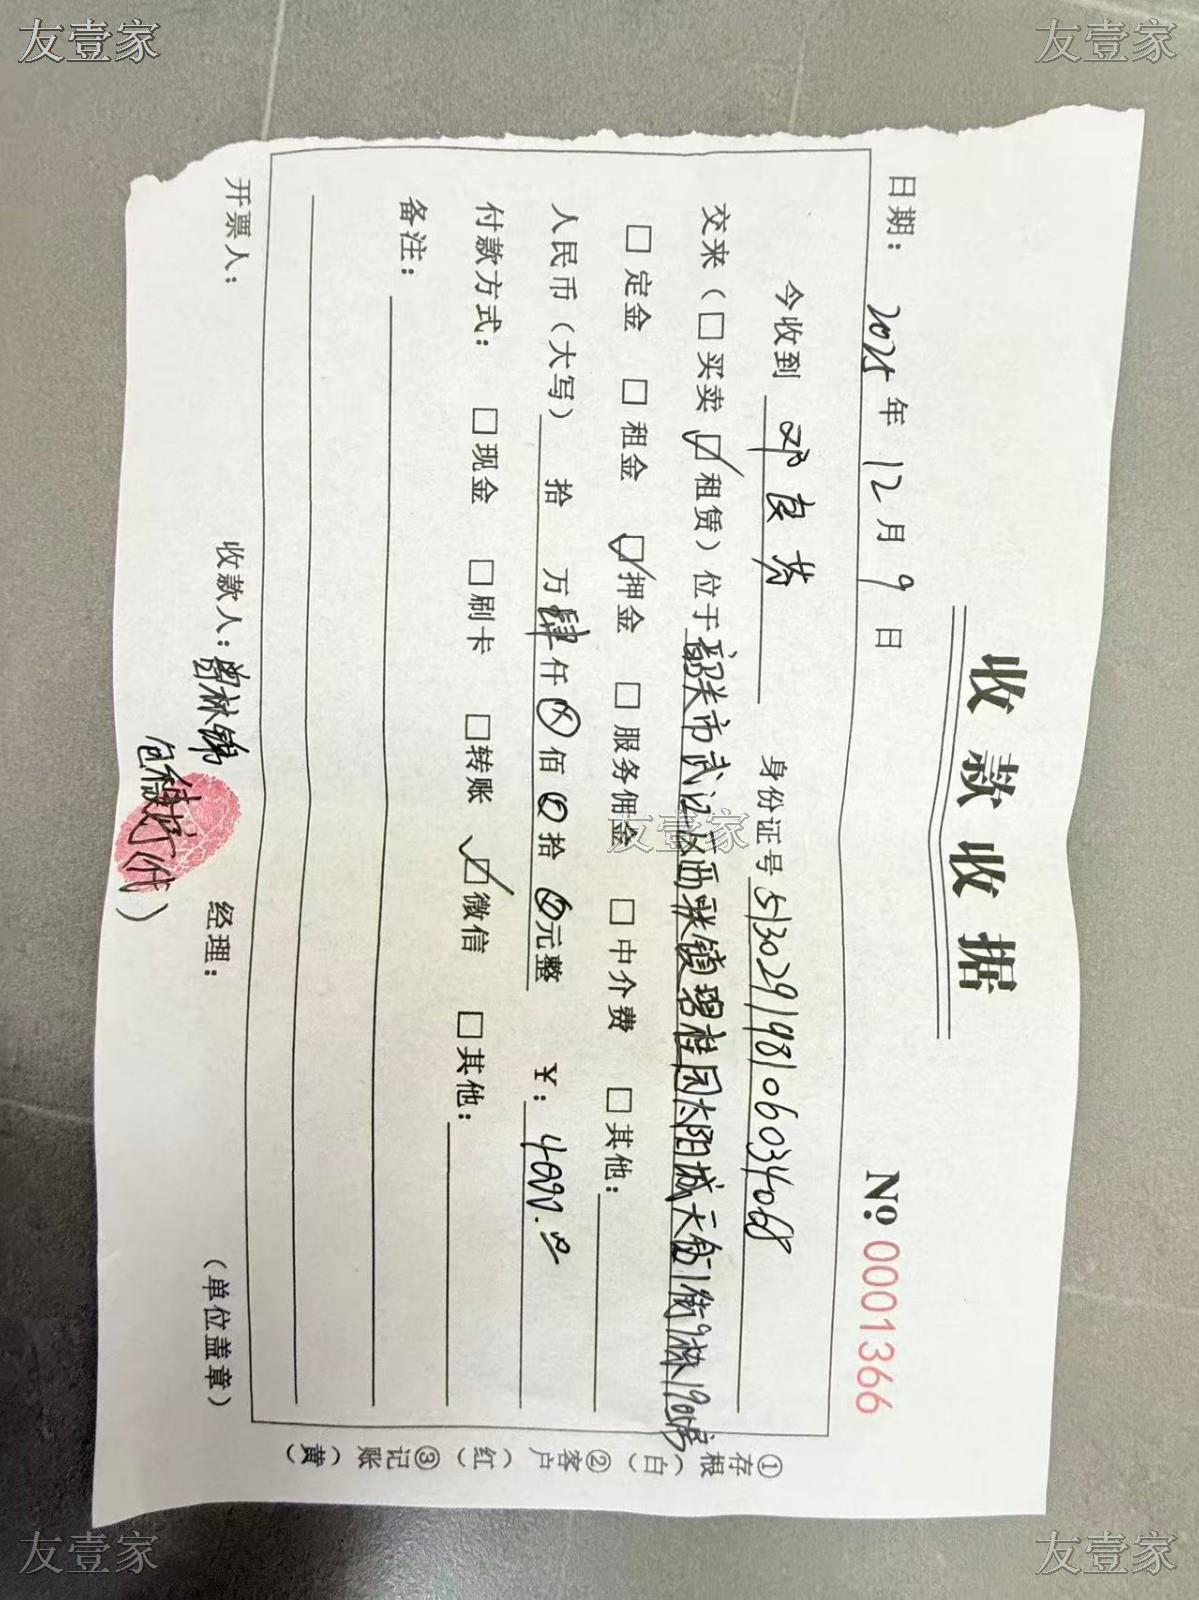 友壹家
友壹家
收款收据
No 0001366
日期: 2025年12月9日
今收到 邓良芬 身份证号 513029198106034068
交来(□买卖 ☑租赁)位于韶关市武江区西联镇碧桂园太阳城天鑫1街9栋1905房
□定金 □租金 ☑押金 □服务佣金 □中介费 □其他:
人民币(大写) 拾 万肆仟⊗佰⊗拾⊗元整 ¥: 4000.00
付款方式: □现金 □刷卡 □转账 ☑微信 □其他:
备注:
开票人: 收款人:曾林锦 经理: (单位盖章)
(代)
①存根(白)②客户(红)③记账(黄)
友壹家
友壹家
友壹家